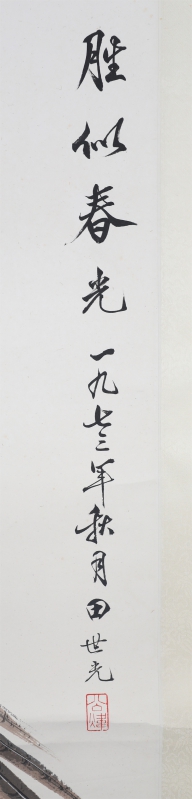 胜似春光 一九七三年秋月田世光
公煒